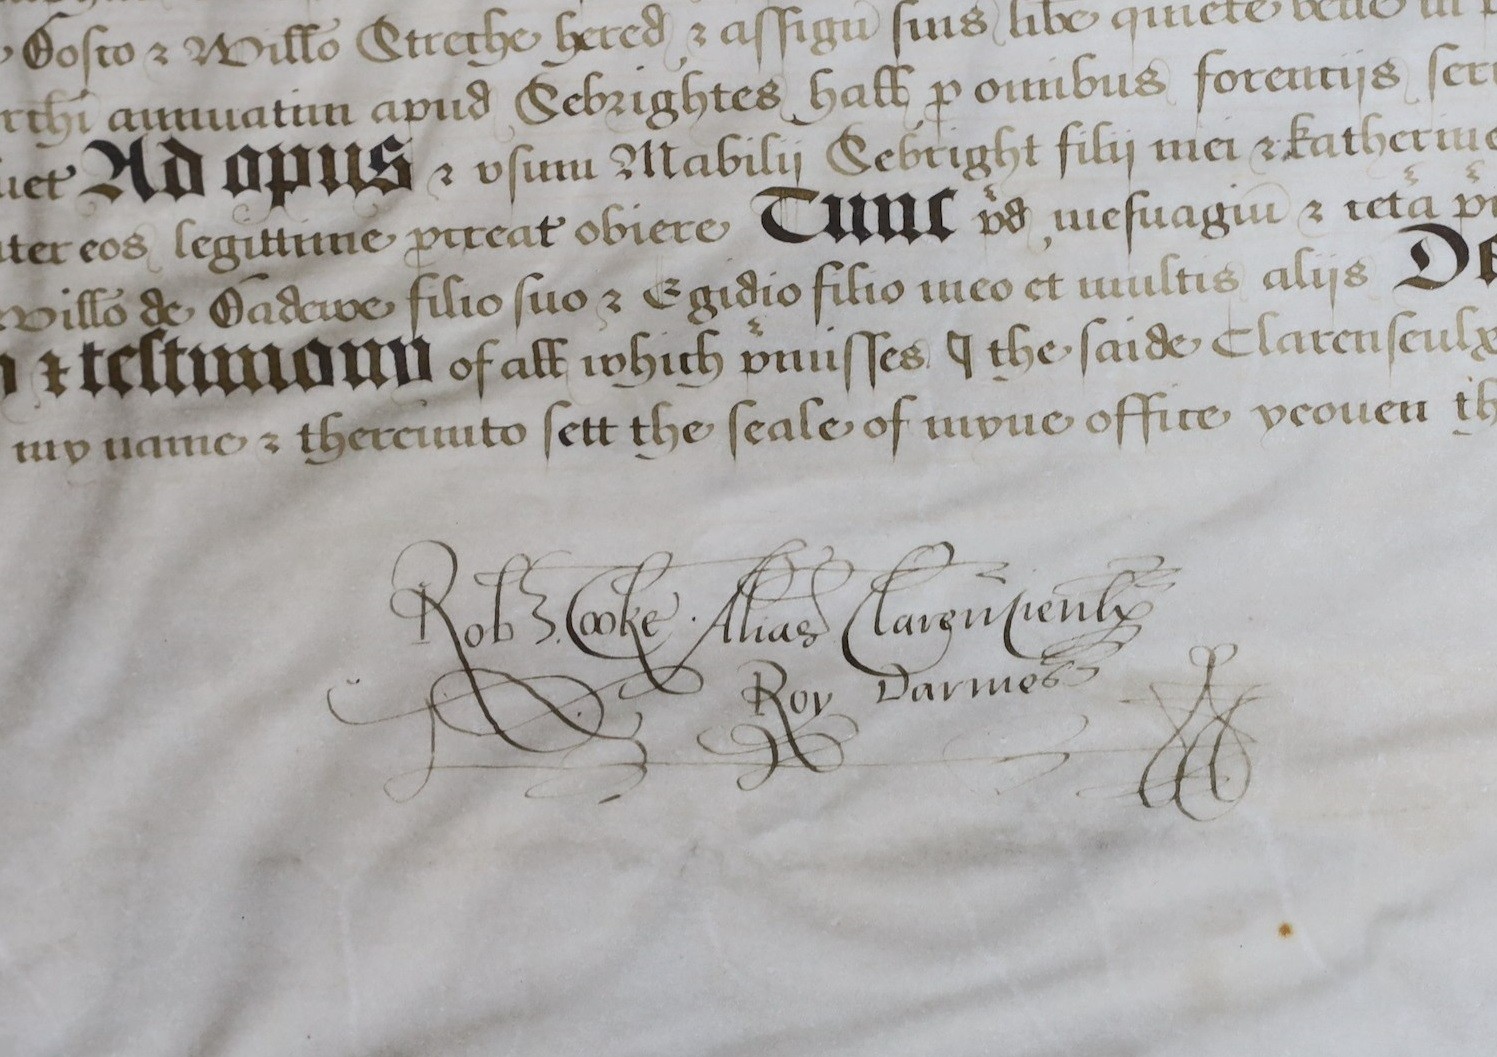 Gosto & Willo Streche hered & assign suis libe quiete bene in
annuatim apud Sebrightes hall p omnibus forencijs
Ad opus & usum Mabilij Sebright filij mei & Katherine
inter eos legittime pcreat obiere Tunc pd mesuagiu & terta
Willo de Oadewe filio suo & Egidio filio meo et multis alijs
& testimony of all which pmisses I the saide Clarenseulx
my name & thereunto sett the seale of myne office yeouen th
Rob Cooke Alias Clarencieulx
Roy Darmes